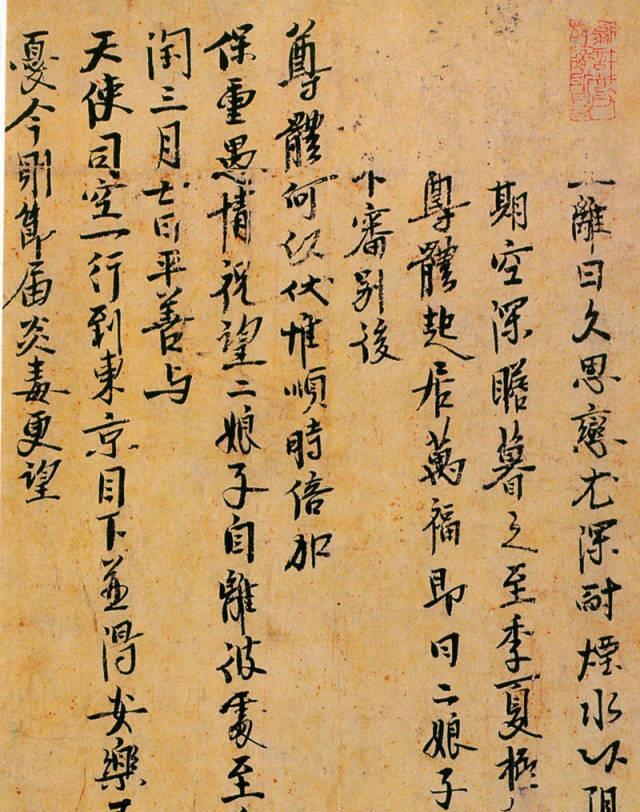 離日久思戀尤深耐煙水以阻
期空深瞻暮之至季夏極
尊體起居萬福即日二娘子
不審別後
尊體何似伏惟順時倍加
保重愚情祝望二娘子自離彼處至
閏三月七日平善与
天使司空一行到東京目下並得安樂
憂今則節届炎毒更望